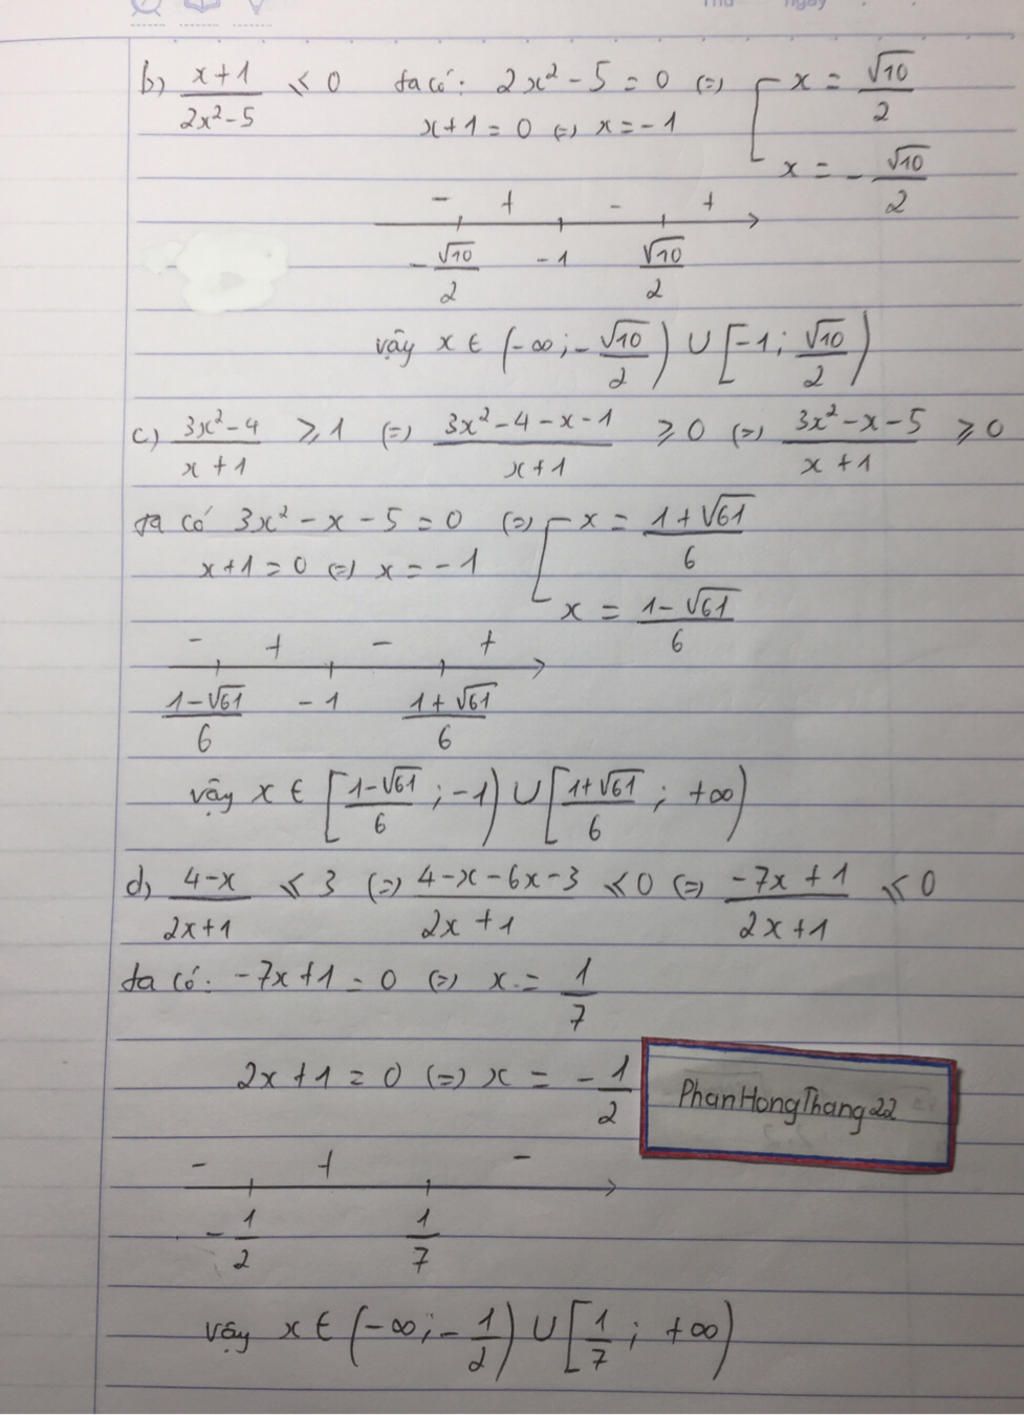 Thứ ngày
b) (x+1)/(2x²-5) ⩽ 0 ta có: 2x² - 5 = 0 (=) [ x = √10/2
x+1 = 0 (=) x = -1
x = -√10/2
- + - +
-√10/2 -1 √10/2
vậy x ∈ (-∞; -√10/2) ∪ [-1; √10/2)
c) (3x²-4)/(x+1) ⩾ 1 (=) (3x²-4-x-1)/(x+1) ⩾ 0 (=) (3x²-x-5)/(x+1) ⩾ 0
ta có 3x² - x - 5 = 0 (=) [ x = (1+√61)/6
x+1 = 0 (=) x = -1
x = (1-√61)/6
- + - +
(1-√61)/6 -1 (1+√61)/6
vậy x ∈ [(1-√61)/6; -1) ∪ [(1+√61)/6; +∞)
d) (4-x)/(2x+1) ⩽ 3 (=) (4-x-6x-3)/(2x+1) ⩽ 0 (=) (-7x+1)/(2x+1) ⩽ 0
ta có: -7x+1 = 0 (=) x = 1/7
2x+1 = 0 (=) x = -1/2
PhanHongThang22
- + -
-1/2 1/7
vậy x ∈ (-∞; -1/2) ∪ [1/7; +∞)